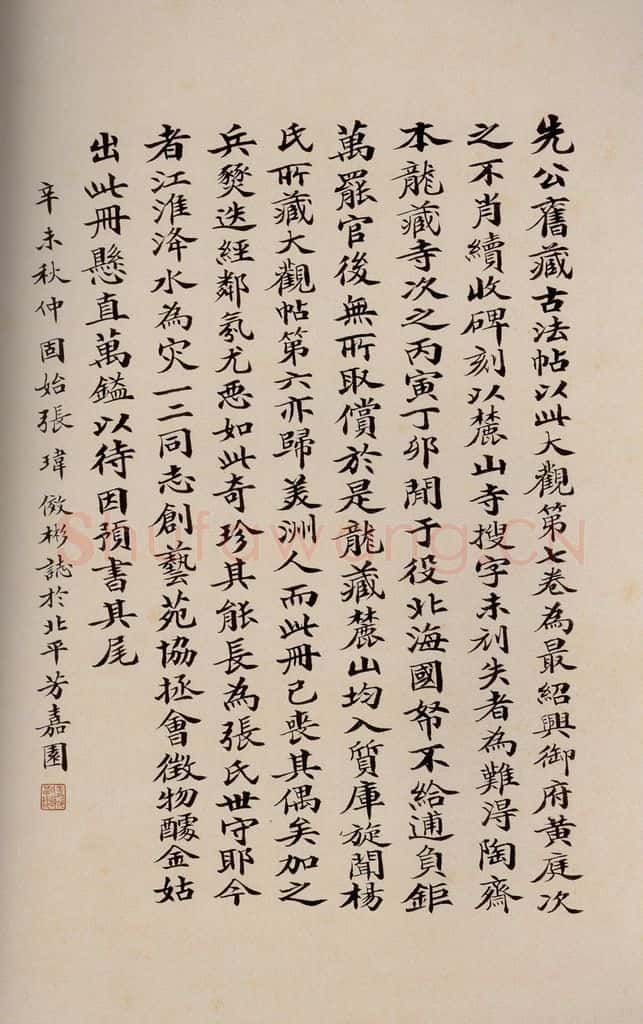 先公舊藏古法帖以此大觀第七卷為最紹興御府黃庭次
之不肖續收碑刻以麓山寺搜字未刓失者為難得陶齋
本龍藏寺次之丙寅丁卯閒于役北海國帑不給逋負鉅
萬罷官後無所取償於是龍藏麓山均入質庫旋聞楊
氏所藏大觀帖第六亦歸美洲人而此冊已喪其偶矣加之
兵燹迭經鄰氛尤惡如此奇珍其能長為張氏世守耶今
者江淮洚水為灾一二同志創藝苑協拯會徵物醵金姑
出此冊懸直萬鎰以待因預書其尾
辛未秋仲固始張瑋傚彬誌於北平芳嘉園
Shufawang.CN